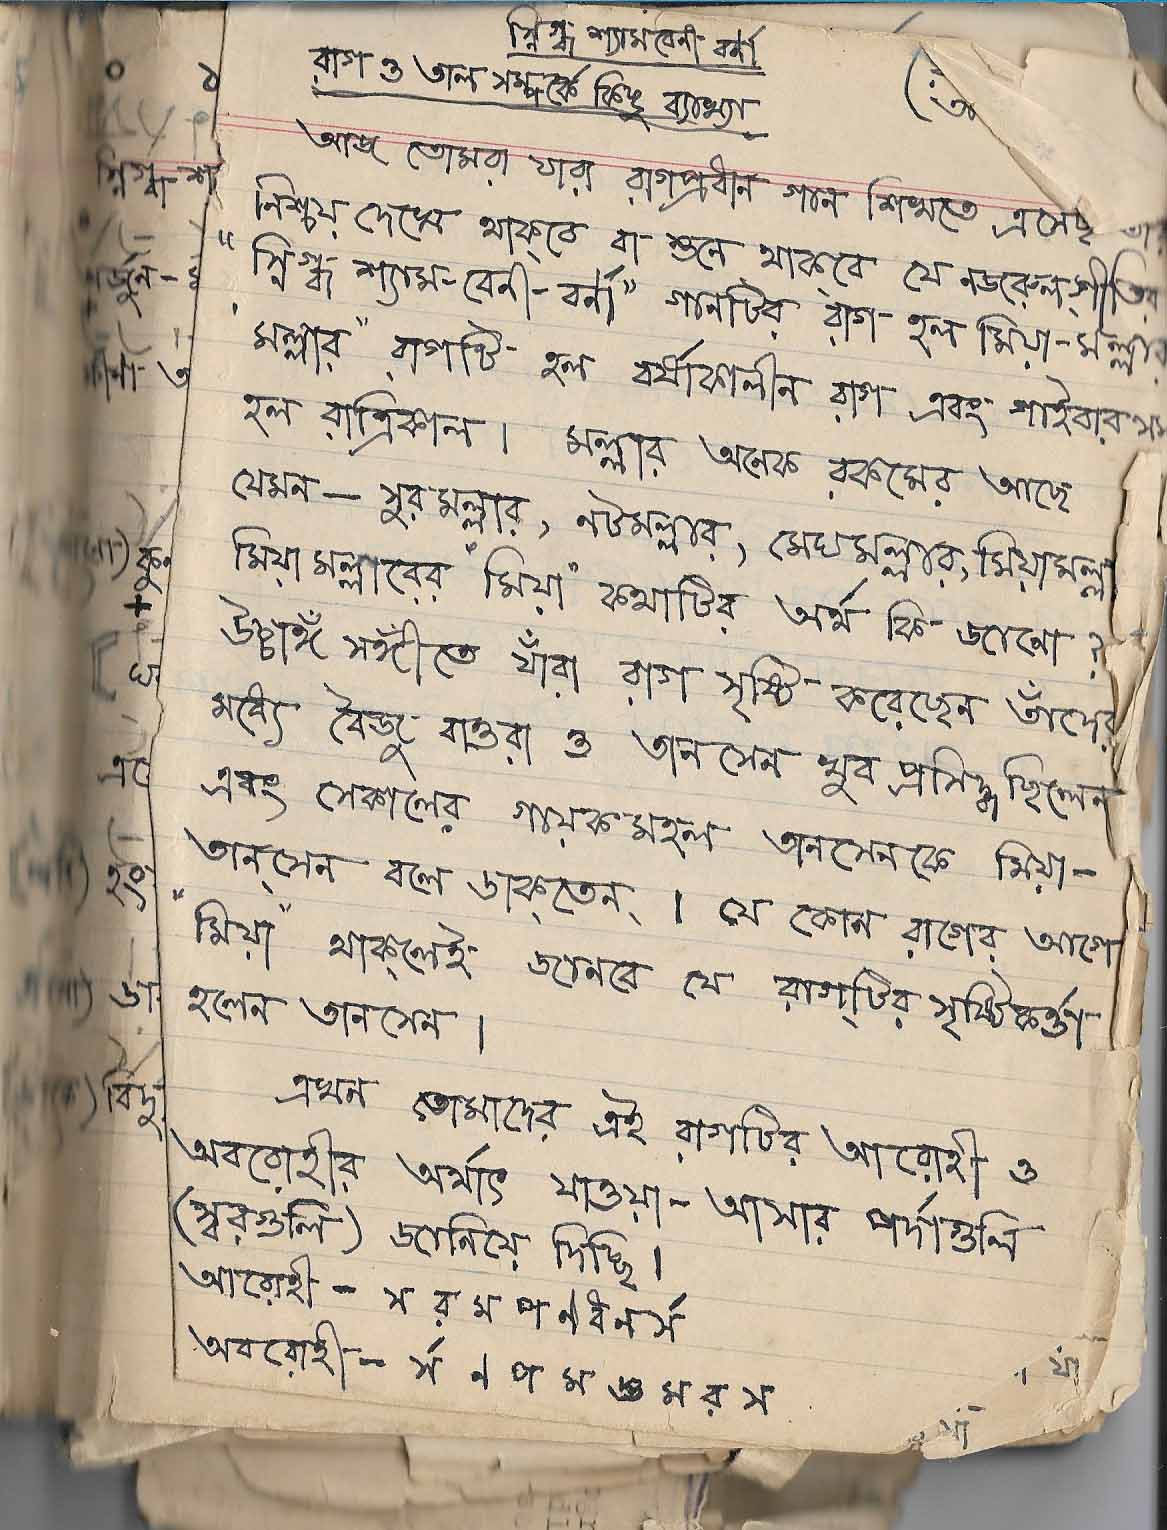 স্নিগ্ধ শ্যামবেনী বর্না
রাগ ও তাল সম্পর্কে কিছু ব্যাখ্যা
আজ তোমরা যারা রাগপ্রধান গান শিখতে এসেছ
নিশ্চয় দেখে থাকবে বা শুনে থাকবে যে নজরুলগীতির
"স্নিগ্ধ শ্যাম-বেনী-বর্না" গানটির রাগ হল মিয়া-মল্লার
মল্লার" রাগটি হল বর্ষাকালীন রাগ এবং গাইবার
হল রাত্রিকাল। মল্লার অনেক রকমের আছে
যেমন — সুরমল্লার, নটমল্লার, মেঘমল্লার, মিয়ামল্লা
মিয়ামল্লারের "মিয়া" কথাটির অর্থ কি জানো?
উচ্চাঙ্গ সঙ্গীতে যাঁরা রাগ সৃষ্টি করেছেন তাঁদের
মধ্যে বৈজু বাওরা ও তানসেন খুব প্রসিদ্ধ ছিলেন
এবং সেকালের গায়কমহল তানসেনকে মিয়া-
তান্‌সেন বলে ডাক্‌তেন্‌। যে কোন রাগের আগে
"মিয়া" থাক্‌লেই জানবে যে রাগ্‌টির সৃষ্টিকর্ত্তা
হলেন তানসেন।
এখন তোমাদের এই রাগটির আরোহী ও
অবরোহীর অর্থাৎ যাওয়া-আসার পর্দাগুলি
(স্বরগুলি) জানিয়ে দিচ্ছি।
আরোহী - স র ম প ণ ধ ন র্স
অবরোহী - র্স ণ প ম জ্ঞ ম র স